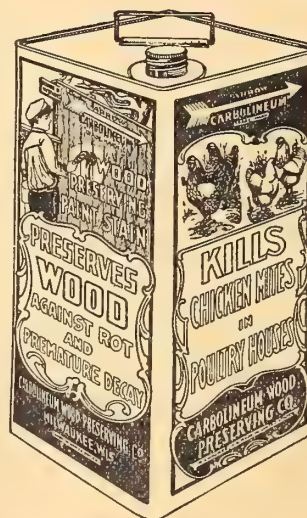 CARBOLINEUM
WOOD
PRESERVING
PAINT STAIN
PRESERVES
WOOD
AGAINST ROT
AND
PREMATURE DECAY
CARBOLINEUM WOOD PRESERVING CO.
MILWAUKEE, WIS.
ARROW
CARBOLINEUM
KILLS
CHICKEN MITES
IN
POULTRY HOUSES
CARBOLINEUM WOOD
PRESERVING CO.